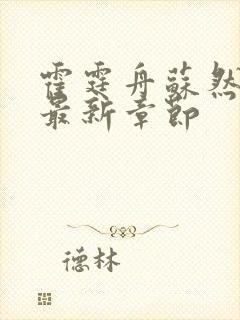 霍霆舟蘇然
最新章節
德林